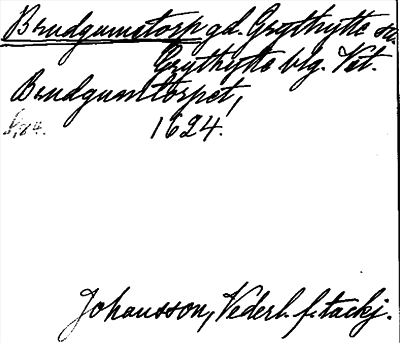 Brudgumstorp gd. Grythytte sn.
Grythytte blg. Vstl.
Brudgumstorpet,
1624.
Johansson, Vederl. f. tackj.